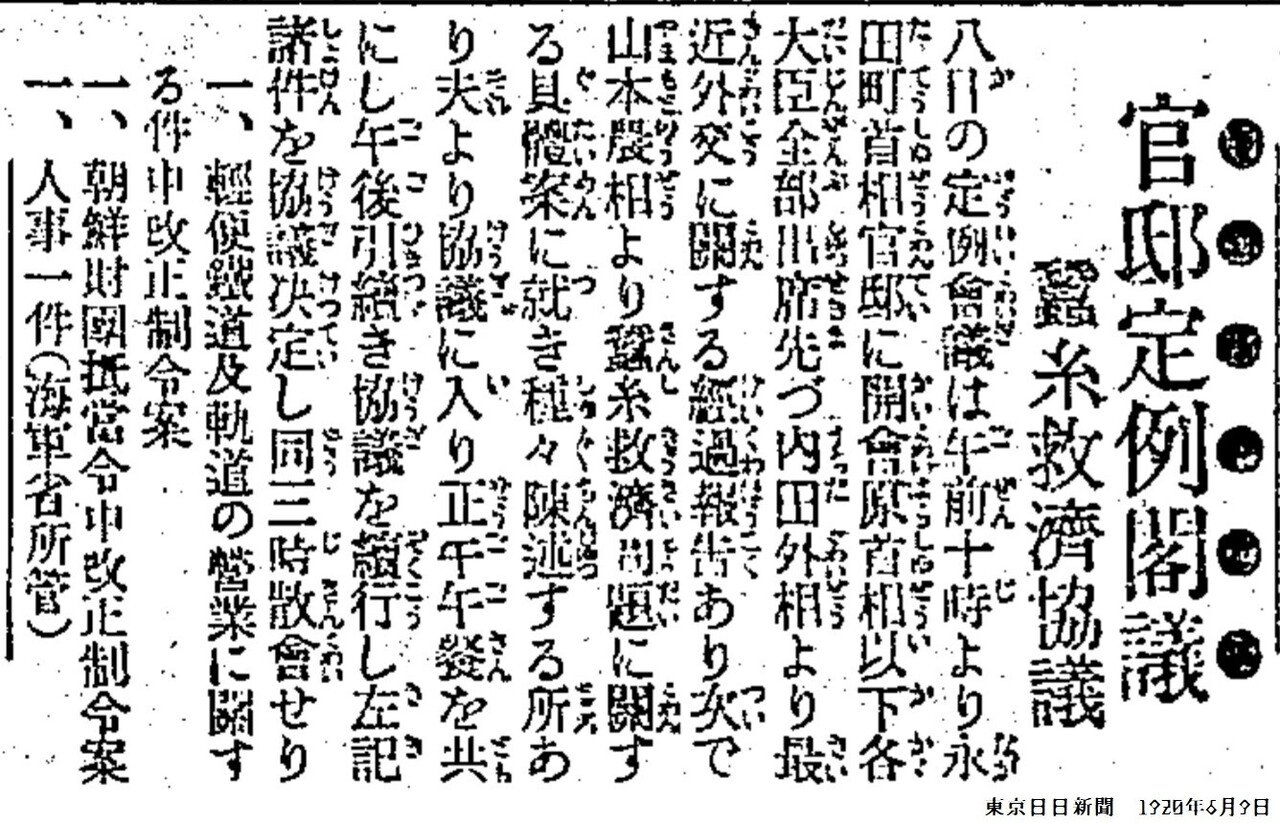 官邸定例閣議
蠶糸救濟協議
八日の定例會議は午前十時より永
田町首相官邸に開會原首相以下各
大臣全部出席先づ内田外相より最
近外交に關する經過報告あり次で
山本農相より蠶糸救濟問題に關す
る具體案に就き種々陳述する所あ
り夫より協議に入り正午午餐を共
にし午後引續き協議を續行し左記
諸件を協議決定し同三時散會せり
一、輕便鐵道及軌道の營業に關す
る件中改正制令案
一、朝鮮財團抵當令中改正制令案
一、人事一件(海軍省所管)
東京日日新聞 1920年6月9日